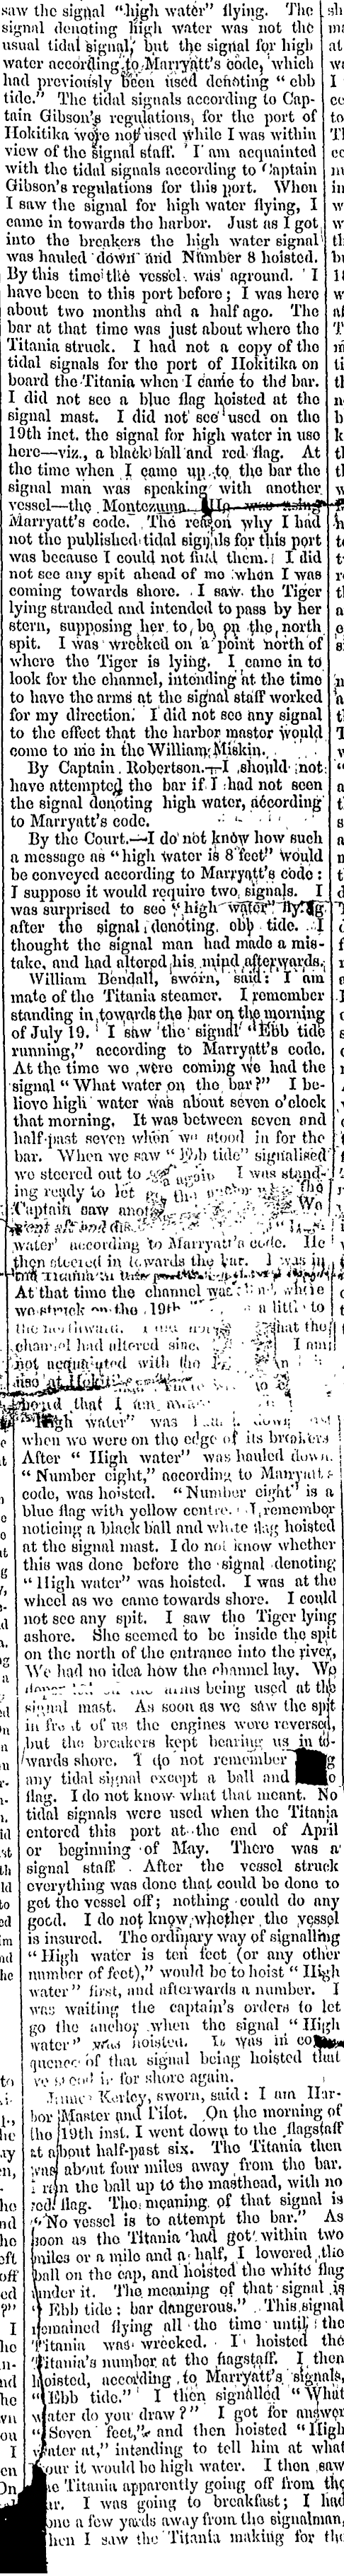 saw the signal "high water" flying. The
signal denoting high water was not the
usual tidal signal, but the signal for high
water according to Marryatt's code, which
had previously been used denoting "ebb
tide." The tidal signals according to Cap-
tain Gibson's regulations, for the port of
Hokitika were not used while I was within
view of the signal staff. I am acquainted
with the tidal signals according to Captain
Gibson's regulations for this port. When
I saw the signal for high water flying, I
came in towards the harbor. Just as I got
into the breakers the high water signal
was hauled down and Number 8 hoisted.
By this time the vessel was aground. I
have been to this port before; I was here
about two months and a half ago. The
bar at that time was just about where the
Titania struck. I had not a copy of the
tidal signals for the port of Hokitika on
board the Titania when I came to the bar.
I did not see a blue flag hoisted at the
signal mast. I did not see used on the
19th inst. the signal for high water in use
here—viz., a black ball and red flag. At
the time when I came up to the bar the
signal man was speaking with another
vessel—the Montezuma
Marryatt's code. The reason why I had
not the published tidal signals for this port
was because I could not find them. I did
not see any spit ahead of me when I was
coming towards shore. I saw the Tiger
lying stranded and intended to pass by her
stern, supposing her to be on the north
spit. I was wrecked on a point north of
where the Tiger is lying. I came in to
look for the channel, intending at the time
to have the arms at the signal staff worked
for my direction. I did not see any signal
to the effect that the harbor master would
come to me in the William Miskin.
By Captain Robertson.—I should not
have attempted the bar if I had not seen
the signal denoting high water, according
to Marryatt's code.
By the Court.—I do not know how such
a message as "high water is 8 feet" would
be conveyed according to Marryatt's code:
I suppose it would require two signals. I
was surprised to see "high water" flying
after the signal denoting ebb tide. I
thought the signal man had made a mis-
take, and had altered his mind afterwards.
William Bendall, sworn, said: I am
mate of the Titania steamer. I remember
standing in towards the bar on the morning
of July 19. I saw the signal "Ebb tide
running," according to Marryatt's code.
At the time we were coming we had the
signal "What water on the bar?" I be-
lieve high water was about seven o'clock
that morning. It was between seven and
half-past seven when we stood in for the
bar. When we saw "Ebb tide" signalised
we steered out to again I was stand-
ing ready to let go the The
Captain saw We
went aft and
water" according to Marryatt's code. He
then steered in towards the bar. I was in
the Titania in
At that time the channel was where
we struck on the 19th a little to
the northward. that the
channel had altered I am
not acquainted with the
use at
that I am
"High water" was
when we were on the edge of its breakers
After "High water" was hauled down.
"Number eight," according to Marryatt's
code, was hoisted. "Number eight" is a
blue flag with yellow centre. I remember
noticing a black ball and white flag hoisted
at the signal mast. I do not know whether
this was done before the signal denoting
"High water" was hoisted. I was at the
wheel as we came towards shore. I could
not see any spit. I saw the Tiger lying
ashore. She seemed to be inside the spit
on the north of the entrance into the river,
We had no idea how the channel lay. We
arms being used at the
signal mast. As soon as we saw the spit
in front of us the engines were reversed,
but the breakers kept bearing us in to-
wards shore. I do not remember
any tidal signal except a ball and
flag. I do not know what that meant. No
tidal signals were used when the Titania
entered this port at the end of April
or beginning of May. There was a
signal staff. After the vessel struck
everything was done that could be done to
get the vessel off; nothing could do any
good. I do not know whether the vessel
is insured. The ordinary way of signalling
"High water is ten feet (or any other
number of feet)," would be to hoist "High
water" first, and afterwards a number. I
was waiting the captain's orders to let
go the anchor when the signal "High
water" was hoisted. It was in
quence of that signal being hoisted that
we stood in for shore again.
James Karley, sworn, said: I am Har-
bor Master and Pilot. On the morning of
the 19th inst. I went down to the flagstaff
at about half-past six. The Titania then
was about four miles away from the bar.
I ran the ball up to the masthead, with no
red flag. The meaning of that signal is
"No vessel is to attempt the bar." As
soon as the Titania had got within two
miles or a mile and a half, I lowered the
ball on the cap, and hoisted the white flag
under it. The meaning of that signal is
"Ebb tide: bar dangerous." This signal
remained flying all the time until the
Titania was wrecked. I hoisted the
Titania's number at the flagstaff. I then
hoisted, according to Marryatt's signals,
"Ebb tide." I then signalled "What
water do you draw?" I got for answer
"Seven feet," and then hoisted "High
water at," intending to tell him at what
hour it would be high water. I then saw
the Titania apparently going off from the
bar. I was going to breakfast; I had
gone a few yards away from the signalman,
when I saw the Titania making for the